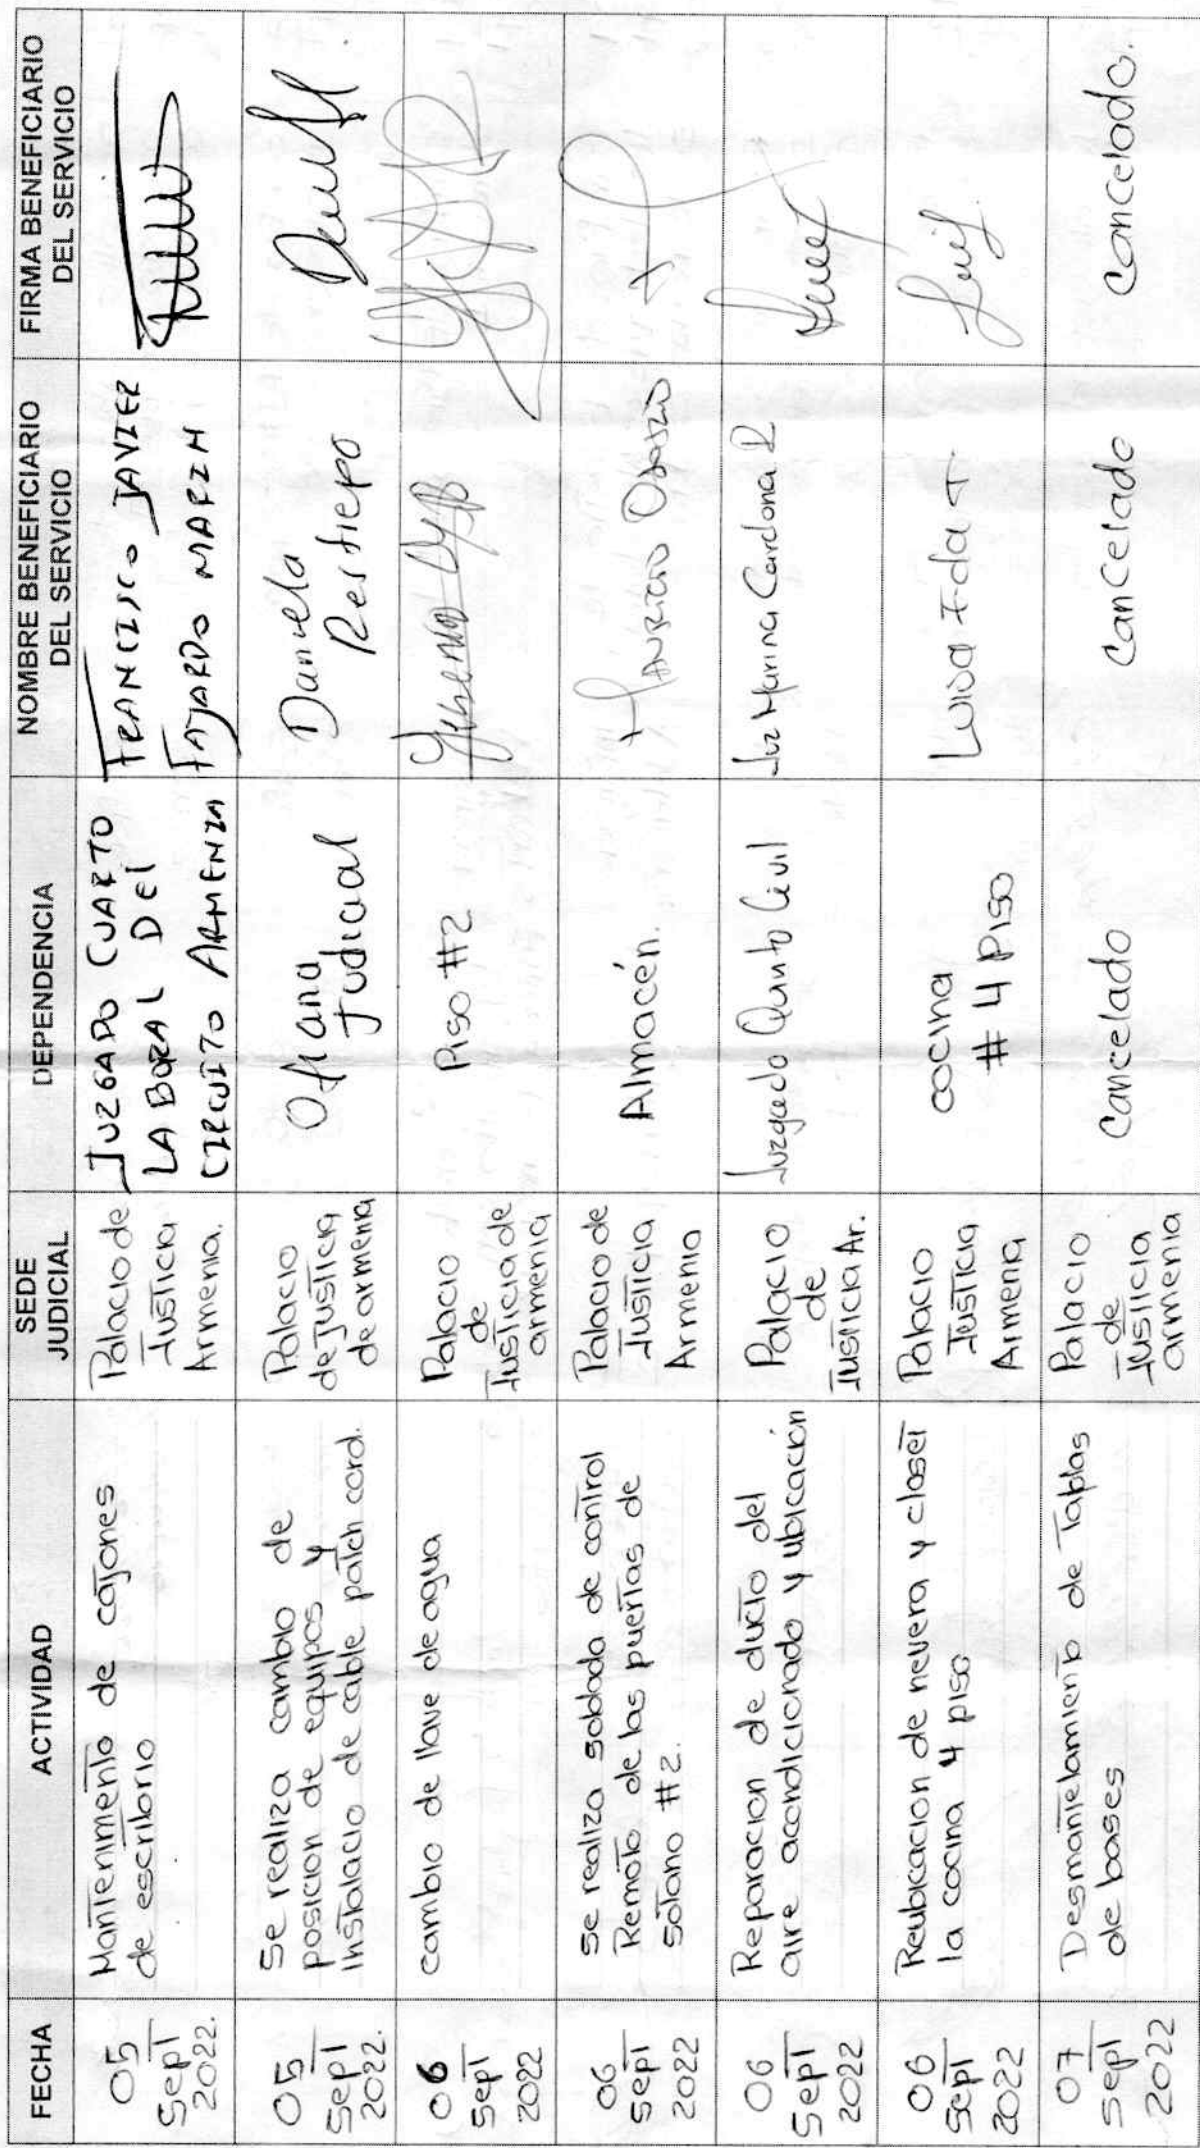 FECHA
ACTIVIDAD
SEDE
JUDICIAL
DEPENDENCIA
NOMBRE BENEFICIARIO
DEL SERVICIO
FIRMA BENEFICIARIO
DEL SERVICIO
05
Sept
2022.
Mantenimento de cajones
de escritorio
Palacio de
Justicia
Armenia.
JUZGADO CUARTO
LABORAL DEl
CIRCUITO ARMENIA
FRANCISCO JAVIER
FAJARDO MARIN
05
Sept
2022.
Se realiza cambio de
posicion de equipos y
instalacio de cable patch cord.
Palacio
de justicia
de armenia
Oficina
Judicial
Daniela
Restrepo
06
Sept
2022
cambio de llave de agua
Palacio
de
Justicia de
armenia
Piso #2
06
Sept
2022
Se realiza soldada de control
Remoto de las puertas de
sotano #2.
Palacio de
Justicia
Armenia
Almacén.
Mauricio
06
Sept
2022
Reparacion de ducto del
aire acondicionado y ubicación
Palacio
de
Justicia Ar.
Juzgado Quinto Civil
Luz Marina Cardona R
06
Sept
2022
Reubicacion de nevera y closet
la cocina 4 piso
Palacio
Justicia
Armenia
cocina
# 4 Piso
Luisa Fda T
07
Sept
2022
Desmantelamiento de Tablas
de bases
Palacio
de
Justicia
armenia
Cancelado
Cancelado
Cancelado.